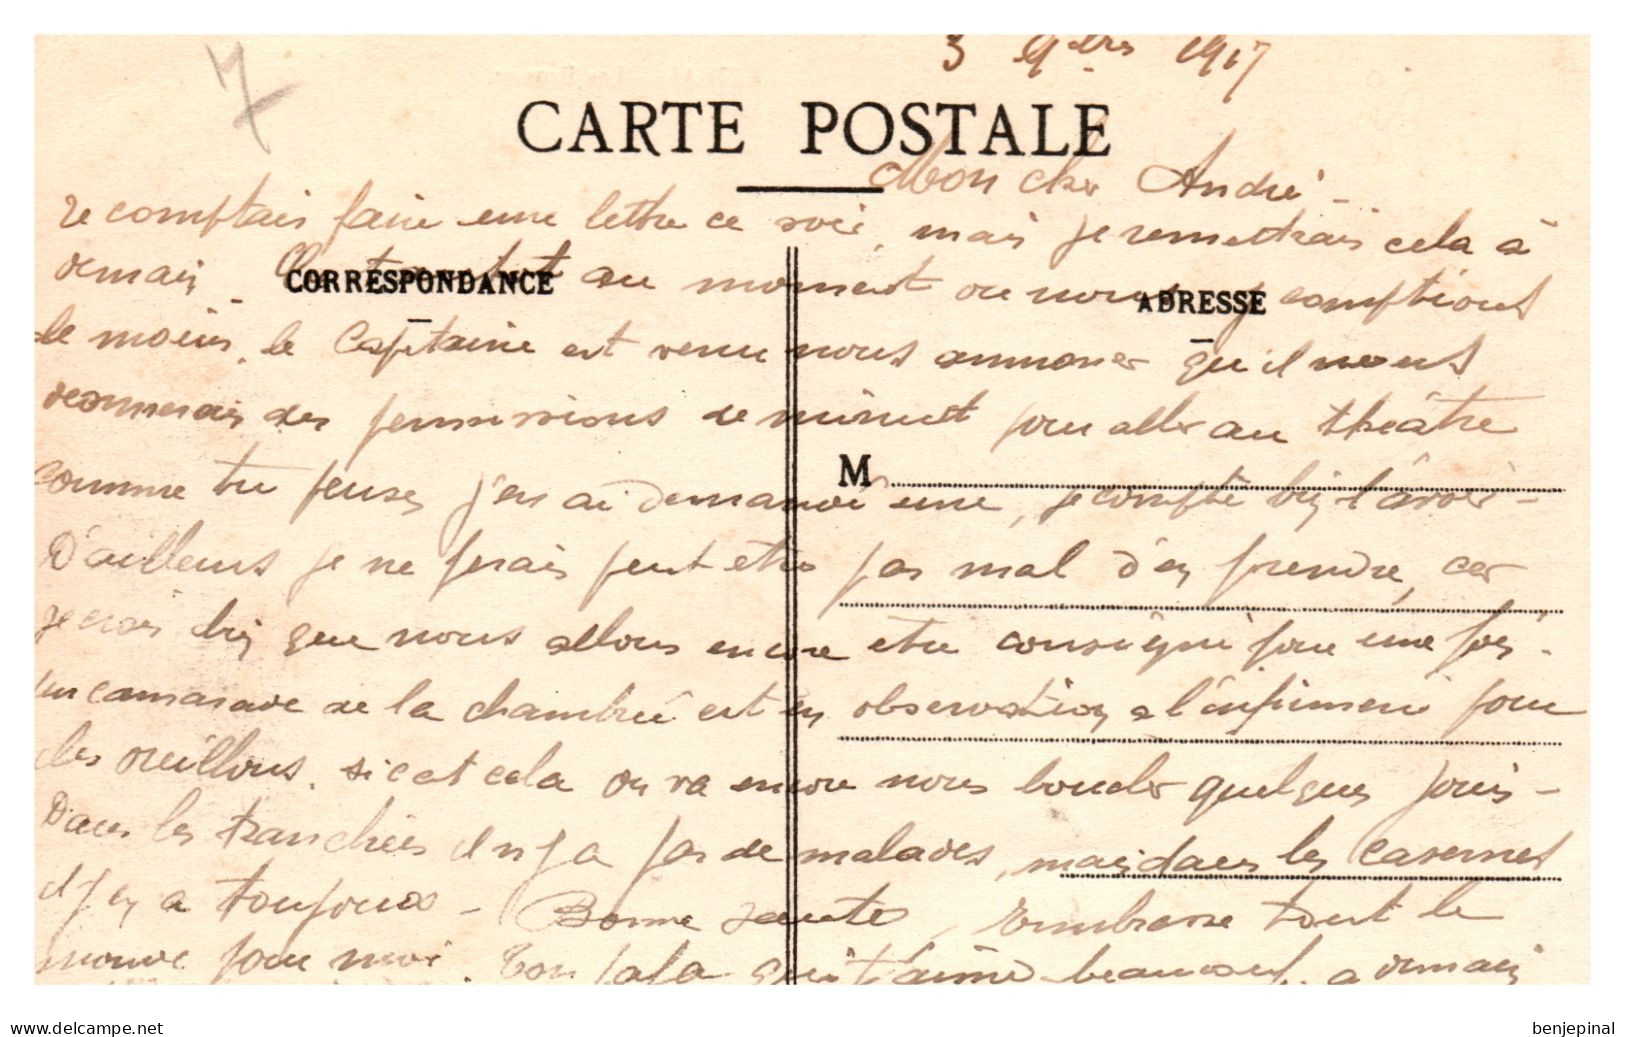 7
3 9bre 1917
CARTE POSTALE
Mon cher André
Je comptais faire une lettre ce soir, mais je remettrais cela à
demain. au moment ou nous y comptions
CORRESPONDANCE
ADRESSE
le moins, le Capitaine est venu nous annoncer qu'il nous
donnerais des permissions de minuit pour aller au théâtre
M
comme tu penses j'en ai demandé une, je compte bien l'avoir -
D'ailleurs je ne ferais peut etre pas mal d'en prendre, car
je crois bien que nous allons encore etre consigné pour une fois.
un camarade de la chambrée est en observation a l'infirmerie pour
les oreillons. si c'est cela on va encore nous boucler quelques jours -
Dans les tranchées il n'y a pas de malades, mais dans les casernes
il y en a toujours - Bonne santé, embrasse tout le
monde pour moi. Ton papa qui t'aime beaucoup. a demain
delcampe.net
benjepinal